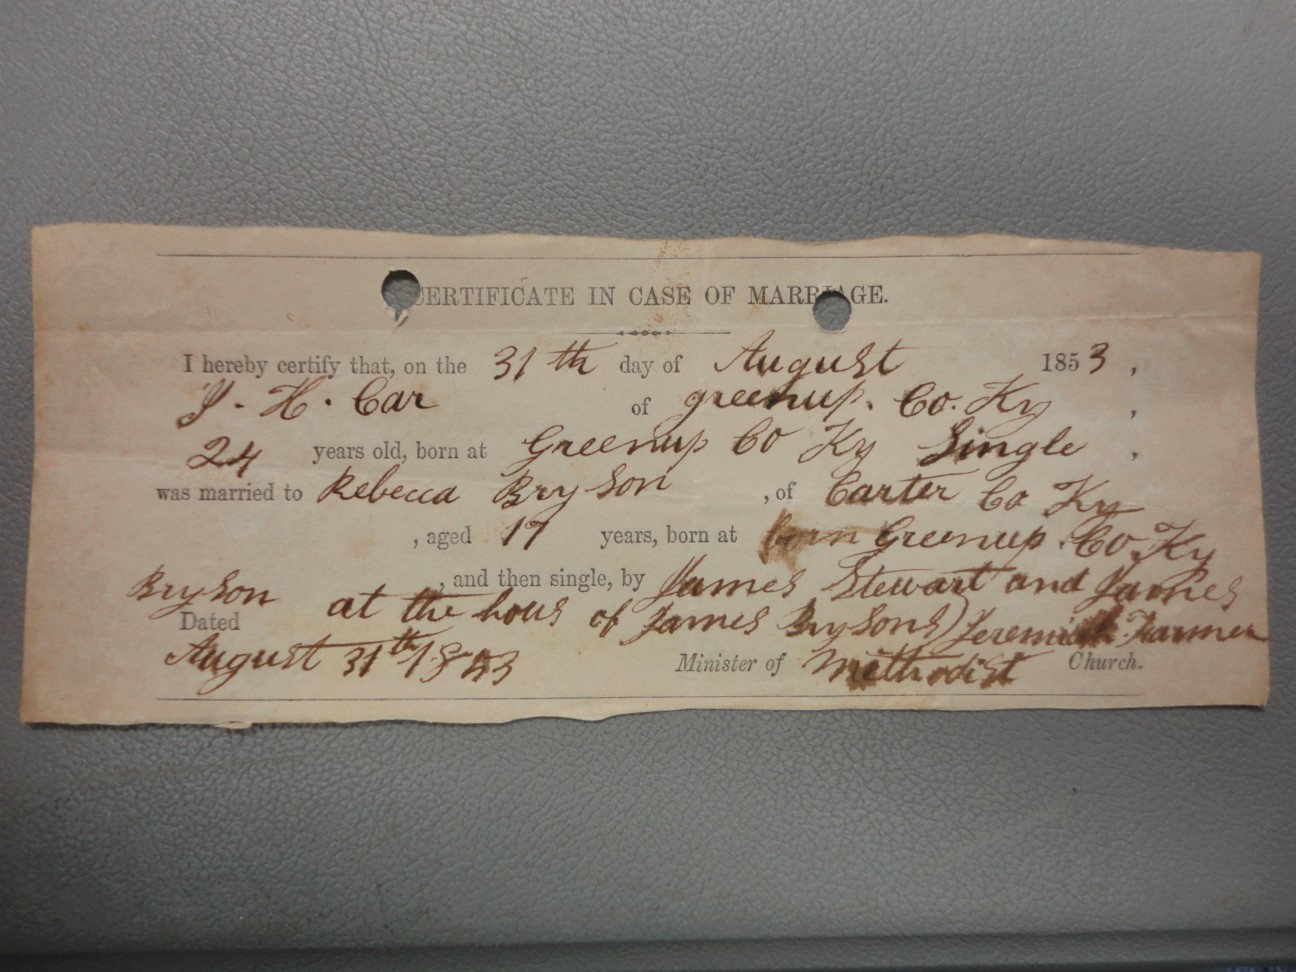 CERTIFICATE IN CASE OF MARRIAGE.
I hereby certify that, on the 31th day of August 1853,
J. H. Car of greenup. Co. Ky,
24 years old, born at Greenup Co Ky Single,
was married to Rebecca Bryson, of Carter Co Ky
, aged 17 years, born at born Greenup. Co. Ky
, and then single, by James Stewart and James
Bryson at the hous of James Brysons) Jeremiah Farmer
Dated
August 31th 1853 Minister of Methodist Church.